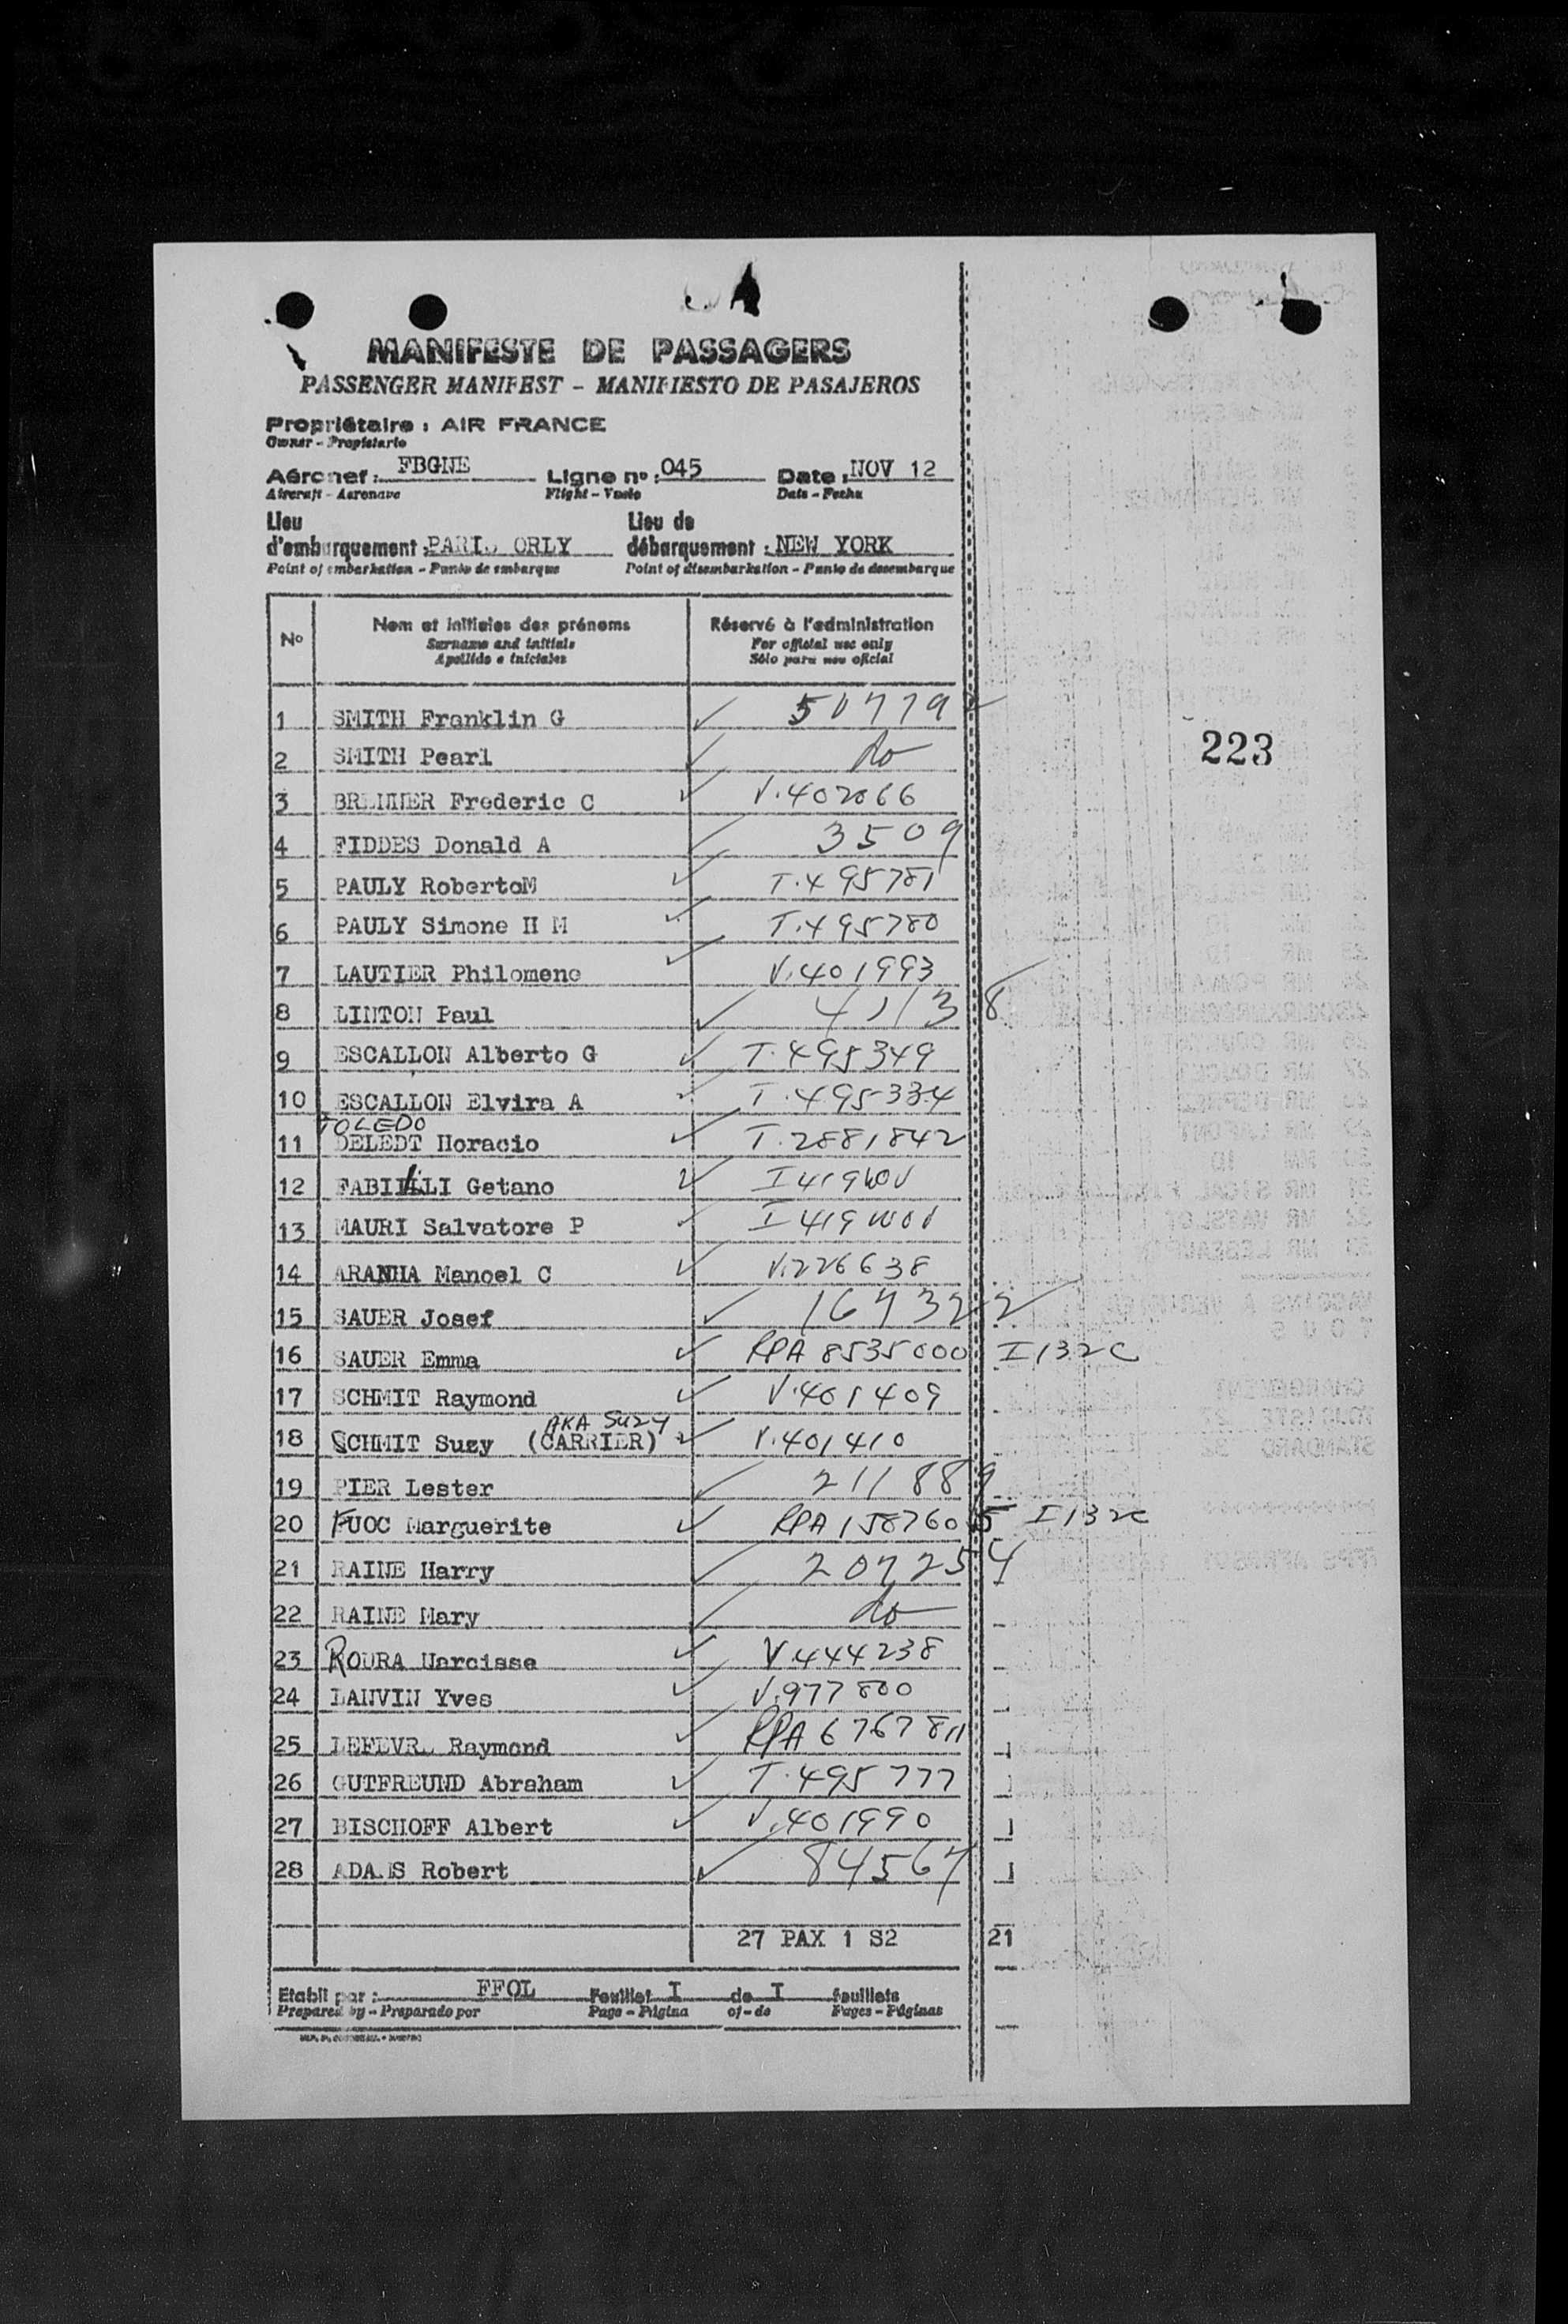 MANIFESTE DE PASSAGERS
PASSENGER MANIFEST - MANIFIESTO DE PASAJEROS
Propriétaire : AIR FRANCE
Owner - Propietario
Aéronef : FBGNE Ligne nº : 045 Date : NOV 12
Aircraft - Aeronave Flight - Vuelo Date - Fecha
Lieu d'embarquement : PARIS ORLY Lieu de débarquement : NEW YORK
Point of embarkation - Punto de embarque Point of disembarkation - Punto de desembarque
Nº Nom et initiales des prénoms Réservé à l'administration
Surname and initials For official use only
Apellido e iniciales Sólo para uso oficial
1 SMITH Franklin G ✓
2 SMITH Pearl ✓ do
223
3 Frederic C ✓ V.402066
4 FIDDES Donald A ✓ 3509
5 PAULY RobertoM ✓ T.495781
6 PAULY Simone H M ✓ T.495780
7 LAUTIER Philomene ✓ V.401993
8 LINTON Paul ✓ 41138
9 ESCALLON Alberto G ✓ T.495349
10 ESCALLON Elvira A ✓ T.495334
TOLEDO
11 DELEDT Horacio ✓ T.2881842
12 Getano ✓
13 MAURI Salvatore P ✓
14 ARANHA Manoel C ✓ V.226638
15 SAUER Josef ✓ 167322
16 SAUER Emma ✓ RPA 8535000 I132C
17 SCHMIT Raymond ✓ V.401409
AKA SUZY
18 SCHMIT Suzy (CARRIER) ✓ V.401410
19 PIER Lester ✓ 211889
20 FUOC Marguerite ✓ RPA 1587605 I132C
21 RAINE Harry ✓ 207254
22 RAINE Mary ✓ do
23 ROURA Narcisse ✓ V.444238
24 LANVIN Yves ✓ V.977800
25 LEFEVRE Raymond ✓ RPA 6767811
26 GUTFREUND Abraham ✓ T.495777
27 BISCHOFF Albert ✓ V.401990
28 ADAMS Robert ✓ 84567
27 PAX 1 S2 21
Etabli par : FFOL Feuillet I de I feuillets
Prepared by - Preparado por Page - Página of - de Pages - Páginas